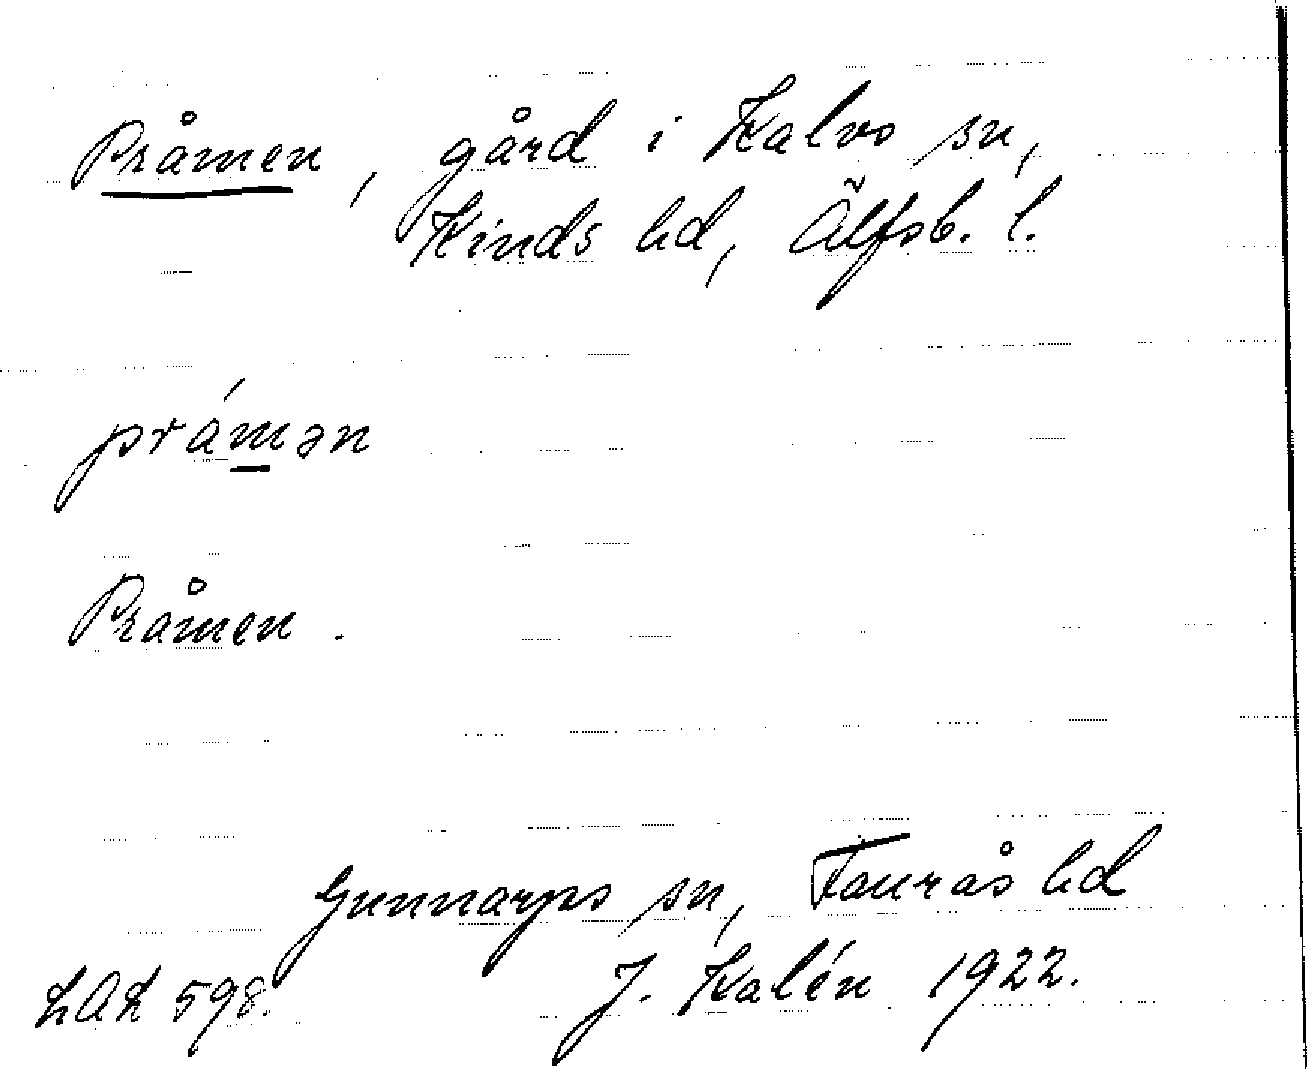 Pråmen, gård i Kalvs sn,
Kinds hd, Älfsb. l.
prámən
Pråmen.
Gunnarps sn, Faurås hd
LAL 598. J. Kalén 1922.